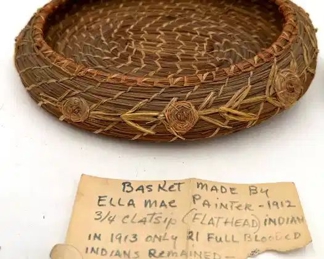 BASKET MADE BY
ELLA MAE PAINTER - 1912
3/4 CLATSIP (FLATHEAD) INDIAN
IN 1913 ONLY 21 FULL BLOODED
INDIANS REMAINED -